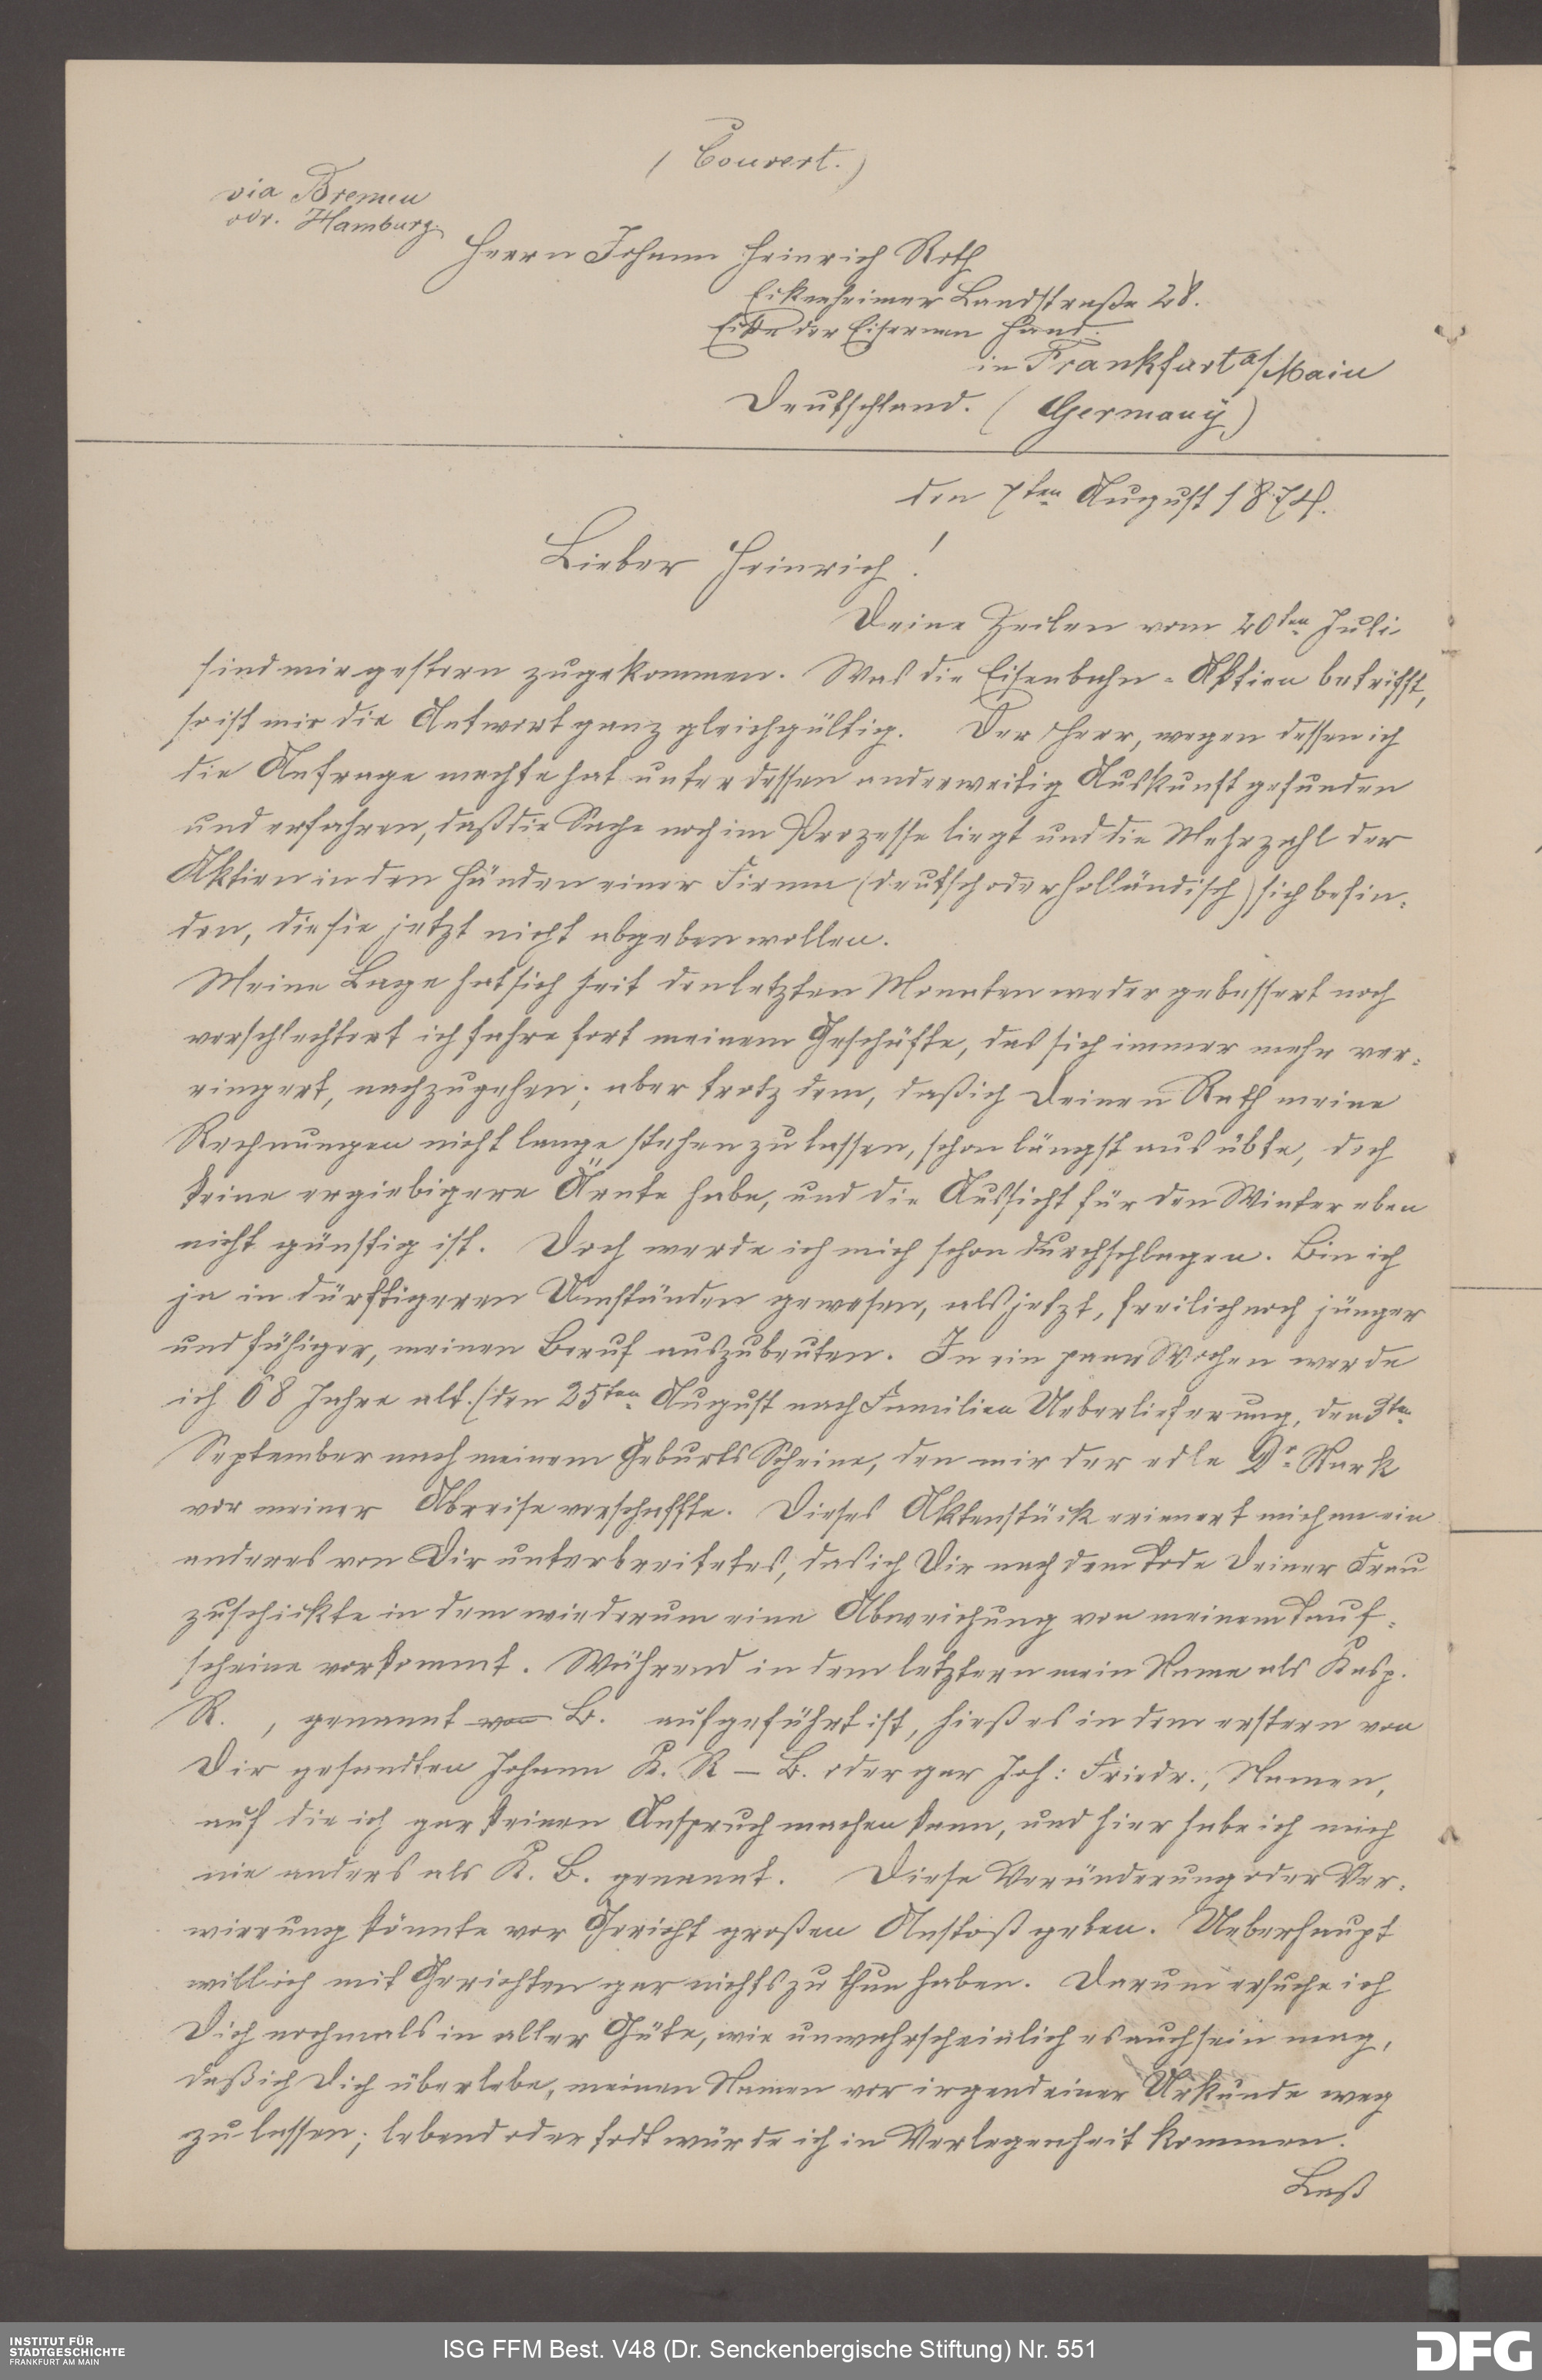 (Couvert.)
via Bremen
odr. Hamburg.
Herrn Johann Heinrich Roth
Eckenheimer Landstraße 28.
Ecke der Eisernen Hand.
in Frankfurt a/Main
Deutschland. (Germany)
den 7ten August 1874.
Lieber Heinrich!
Deine Zeilen vom 20ten Juli
sind mir gestern zugekommen. Was die Eisenbahn-Aktien betrifft,
so ist mir die Antwort ganz gleichgültig. Der Herr, wegen dessen ich
die Anfrage machte hat unterdessen anderweitig Auskunft gefunden
und erfahren, daß die Sache noch im Prozesse liegt und die Mehrzahl der
Aktien in den Händen einer Firma (deutsch oder holländisch) sich befin-
den, die sie jetzt nicht abgeben wollen.
Meine Lage hat sich seit den letzten Monaten weder gebessert noch
verschlechtert ich fahre fort meinem Geschäfte, das sich immer mehr ver-
ringert, nachzugehen; aber trotz dem, daß ich Deinen Rath meine
Rechnungen nicht lange stehen zu lassen, schon längst aus übte, doch
keine ergiebigere Ärnte habe, und die Aussicht für den Winter eben
nicht günstig ist. Doch werde ich mich schon durchschlagen. Bin ich
ja in dürftigeren Umständen gewesen, als jetzt, freilich noch jünger
und fähiger, meinen Beruf auszubeuten. In ein paar Wochen werde
ich 68 Jahre alt. (den 25ten August nach Familien Ueberlieferung, den 3ten
September nach meinem Geburts Scheine, den mir der edle Dr.
vor meiner Abreise verschaffte. Dieses Aktenstück erinnert mich an ein
anderes von Dir unterbreitetes, das ich Dir nach dem Tode Deiner Frau
zuschickte in dem wiederum eine Abweichung von meinem Tauf-
scheine vorkommt. Während in dem letztern mein Name als Kasp.
R. , genannt von B. aufgeführt ist, hieß es in dem erstern von
Dir gesandten Johann K. R – B. oder gar Joh: Friedr., Namen,
auf die ich gar keinen Anspruch machen kann, und hier habe ich mich
nie anders als K. B. genannt. Diese Veränderung oder Ver-
wirrung könnte vor Gericht großen Anstoß geben. Ueberhaupt
will ich mit Gerichten gar nichts zu thun haben. Darum ersuche ich
Dich nochmals in aller Güte, wie unwahrscheinlich es auch sein mag,
daß ich Dich überlebe, meinen Namen vor irgend einer Urkunde weg
zu lassen; lebend oder todt würde ich in Verlegenheit kommen.
Laß
INSTITUT FÜR
STADTGESCHICHTE
FRANKFURT AM MAIN
ISG FFM Best. V48 (Dr. Senckenbergische Stiftung) Nr. 551
DFG